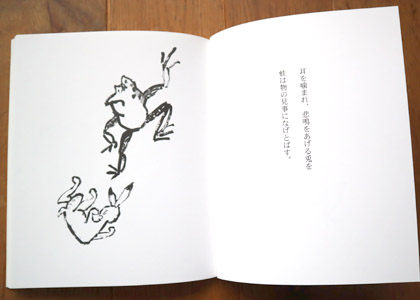 耳を噛まれ、悲鳴をあげる兎を
蛙は物の見事になげとばす。